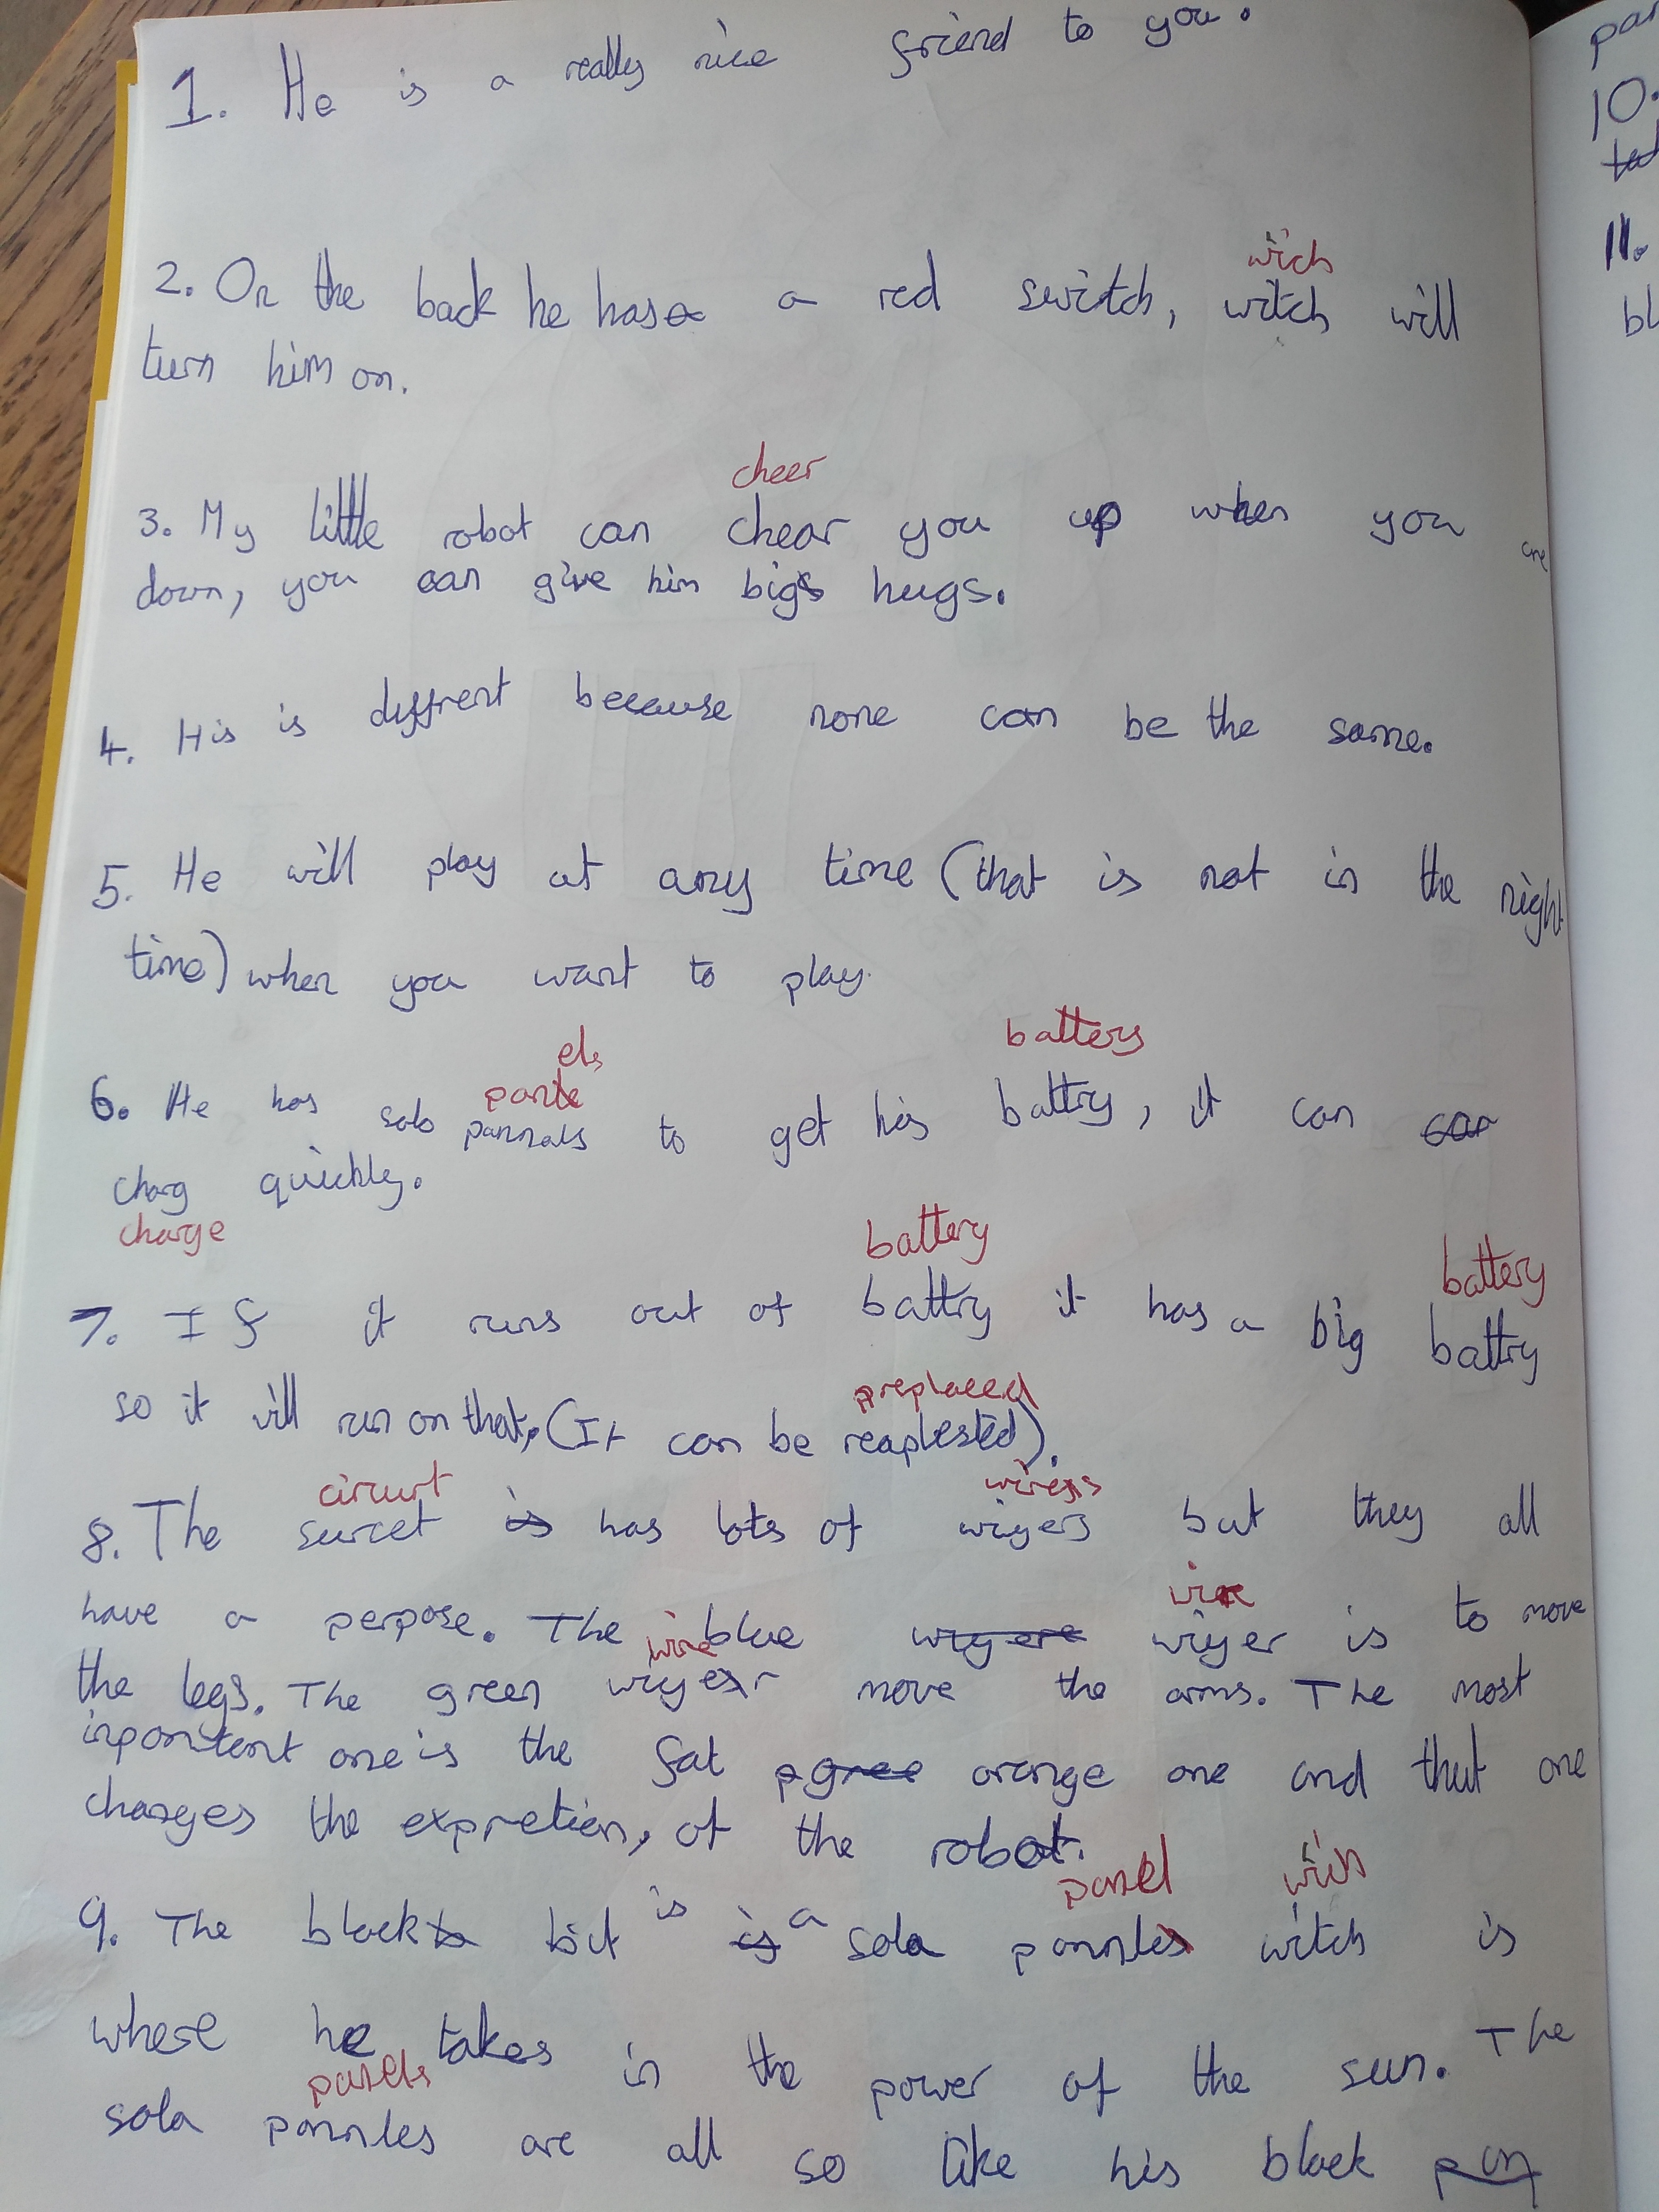 1. He is a really nice friend to you.
wich
2. On the back he has a red switch, witch will
turn him on.
cheer
3. My little robot can chear you up when you are
down, you can give him big hugs.
4. His is diffrent because none can be the same.
5. He will play at any time (that is not in the night
time) when you want to play.
els battery
panle
6. He has sola pannals to get his battry, it can can
charg quickly.
charge
battery battery
7. If it runs out of battry it has a big battry
preplaced
so it will run on that, (It can be reaplested).
circurt wires
8. The surcet is has lots of wiyers but they all
wire
have a perpose. The blue wiyere wiyer is to move
wire
the legs. The green wiyer move the arms. The most
inportent one is the fat orange one and that one
changes the expretion, of the robot.
panel wich
9. The black bit is is a sola pannles witch is
where he takes in the power of the sun. The
panels
sola pannles are all so like his black pan
par
10.
11.
bl